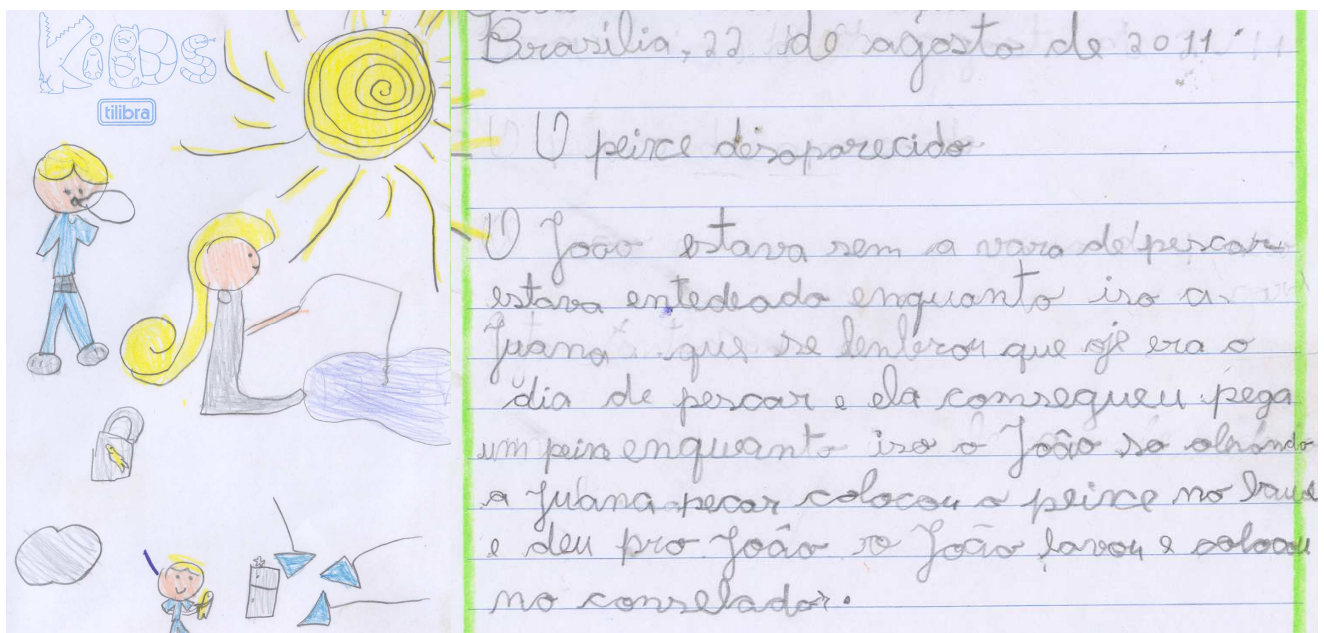 KiDS
tilibra
Brasilia, 22 de agosto de 2011.
O peixce desaparecido
O João estava sem a vara de pescar
estava entedeado enquanto iso a
Juana que se lenbrou que oje era o
dia de pescar e ela comsegueu pega
um peixe enquanto iso o João so olhando
a Juana pecar colocou o peixce no
e deu pro João o João lavou e colocou
no conselador.